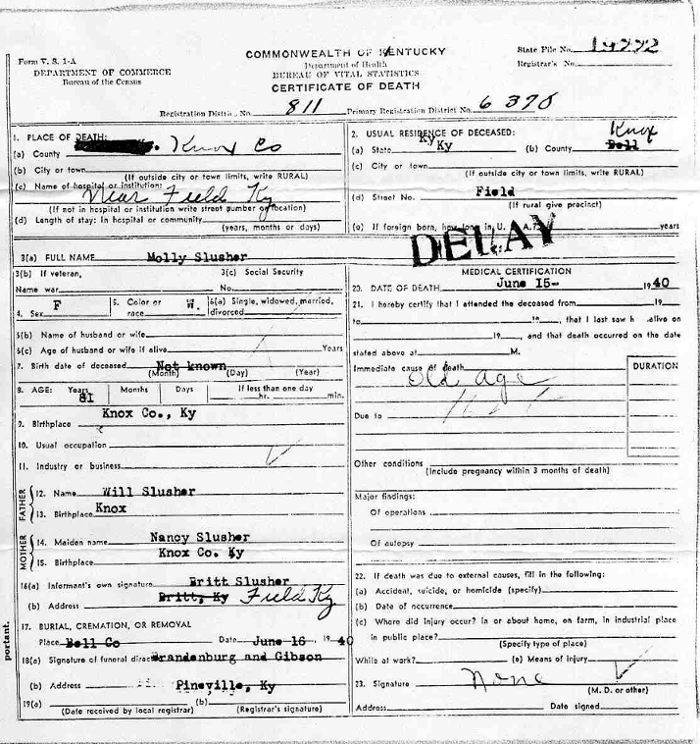 Form V. S. 1-A
DEPARTMENT OF COMMERCE
Bureau of the Census
COMMONWEALTH OF KENTUCKY
Department of Health
BUREAU OF VITAL STATISTICS
CERTIFICATE OF DEATH
State File No.
Registrar's No.
Registration District No. 811 Primary Registration District No. 6370
1. PLACE OF DEATH:
(a) County Knox Co
(b) City or town
(If outside city or town limits, write RURAL)
(c) Name of hospital or institution:
Near Field Ky
(If not in hospital or institution write street number or location)
(d) Length of stay: In hospital or community
(years, months or days)
2. USUAL RESIDENCE OF DECEASED:
(a) State Ky Ky (b) County Knox Bell
(c) City or town
(If outside city or town limits, write RURAL)
(d) Street No. Field
(If rural give precinct)
(e) If foreign born, how long in U. S. A.? years
DELAY
3(a) FULL NAME Molly Slusher
3(b) If veteran, 3(c) Social Security
Name war No.
4. Sex F 5. Color or race W. 6(a) Single, widowed, married, divorced
6(b) Name of husband or wife
6(c) Age of husband or wife if alive Years
7. Birth date of deceased Not known
(Month) (Day) (Year)
8. AGE: Years Months Days If less than one day
81 hr. min.
Knox Co., Ky
9. Birthplace
10. Usual occupation
11. Industry or business
FATHER
12. Name Will Slusher
13. Birthplace Knox
MOTHER
14. Maiden name Nancy Slusher
15. Birthplace Knox Co. Ky
16(a) Informant's own signature Britt Slusher
(b) Address Britt, Ky Field Ky
17. BURIAL, CREMATION, OR REMOVAL
Place Bell Co Date June 16 1940
18(a) Signature of funeral director Brandenburg and Gibson
(b) Address Pineville, Ky
19(a) (b)
(Date received by local registrar) (Registrar's signature)
portant.
MEDICAL CERTIFICATION
20. DATE OF DEATH June 15- 1940
21. I hereby certify that I attended the deceased from 19
to 19, that I last saw h alive on
19, and that death occurred on the date
stated above at M.
Immediate cause of death DURATION
Old age
Due to
Other conditions
(Include pregnancy within 3 months of death)
Major findings:
Of operations
Of autopsy
22. If death was due to external causes, fill in the following:
(a) Accident, suicide, or homicide (specify)
(b) Date of occurrence
(c) Where did injury occur? in or about home, on farm, in industrial place
in public place?
(Specify type of place)
While at work? (e) Means of injury
23. Signature None
(M. D. or other)
Address Date signed